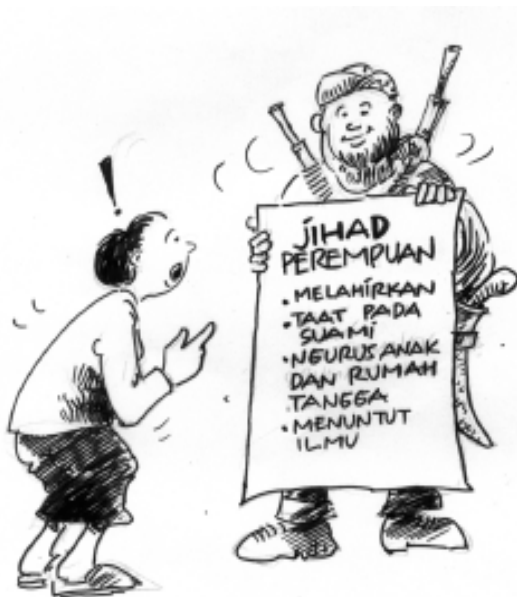 !
JIHAD
PEREMPUAN
• MELAHIRKAN
• TAAT PADA
SUAMI
• NGURUS ANAK
DAN RUMAH
TANGGA
• MENUNTUT
ILMU